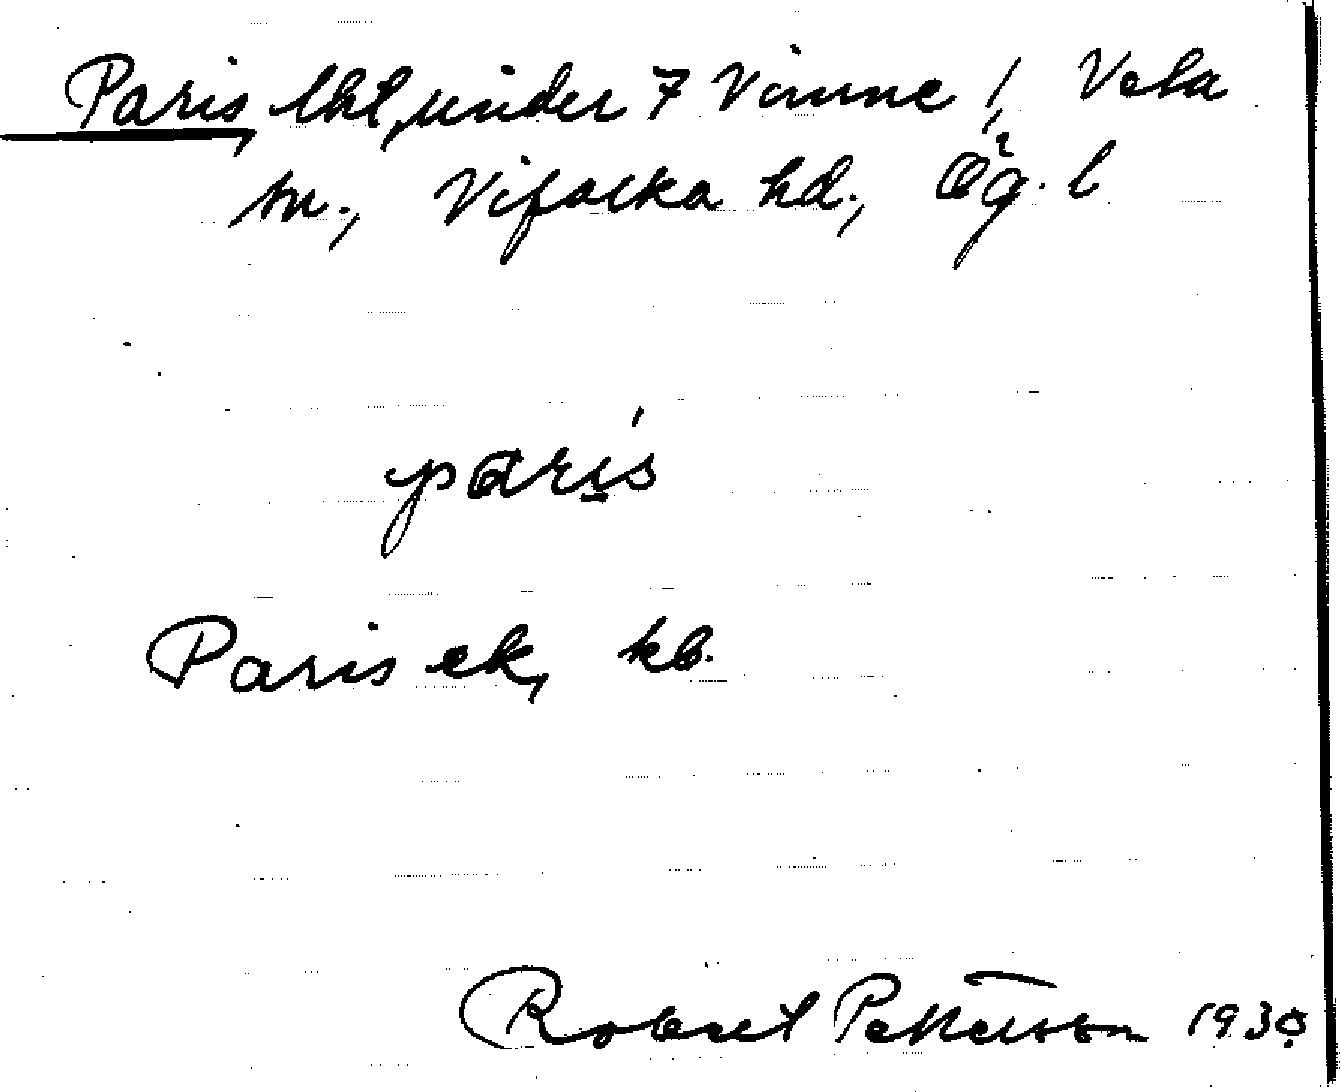 Paris, lht, under 7 Vimne /, Veta
sn., Vifolka hd., Ög. l
parís
Paris ek, kb.
Robert Pettersson 1930